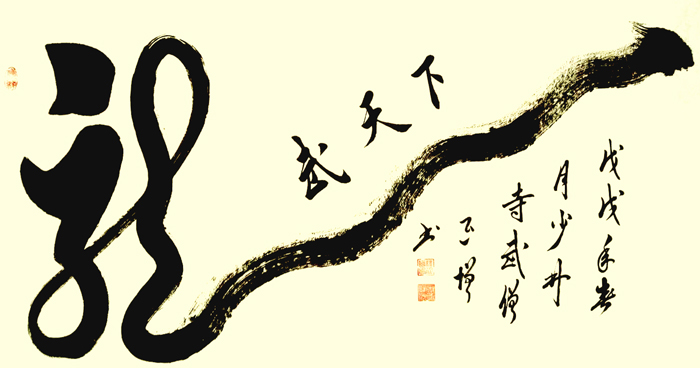 龍
武天下
戊戌年春
月少林
寺武僧
书